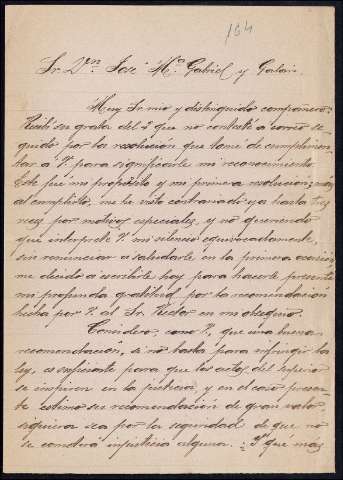 164
Sr. Dn. José Mª. Gabriel y Galán.
Muy Sr. mio y distinguido compañero:
Recibí su grata del 2 que no contesté a correo se-
guido por la resolución que tomé de cumplimen-
tar a V. para significarle mi reconocimiento.
Este fué mi propósito y mi primera resolución; mas
al cumplirlo, me he visto contrariado ya hasta tres
veces por motivos especiales, y no queriendo
que interprete V. mi silencio equivocadamente,
sin renunciar a saludarle en la primera ocasión
me decido a escribirle hoy para hacerle presente
mi profunda gratitud por la recomendación
hecha por V. al Sr. Rector en mi obsequio.
Considero, como V., que una buena
recomendación, si no basta para infringir la
ley, es suficiente para que los actos del superior
se inspiren en la justicia, y en el caso presen-
te estimo su recomendación de gran valor
siquiera sea por la seguridad de que no
se cometerá injusticia alguna. Y qué más